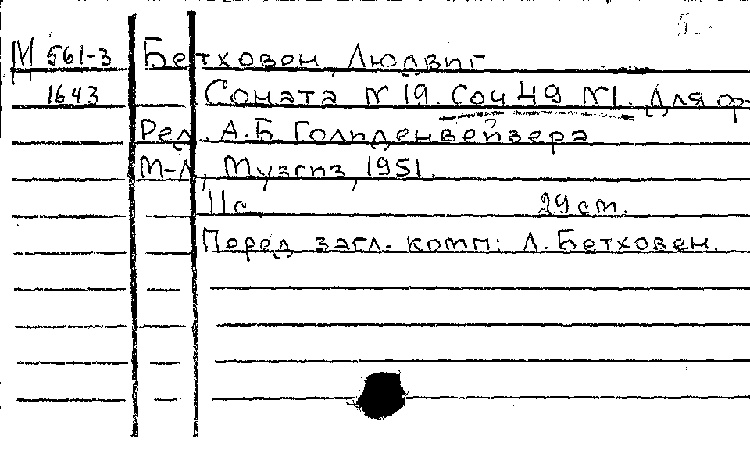 М 561-3 Бетховен, Людвиг
1643 Соната N 19. Соч 49 N1. Для ф
Ред. А.Б Голиденвейзера
М-Л, Музгиз, 1951.
11с. 29 cm.
Перед загл. комп: Л. Бетховен.